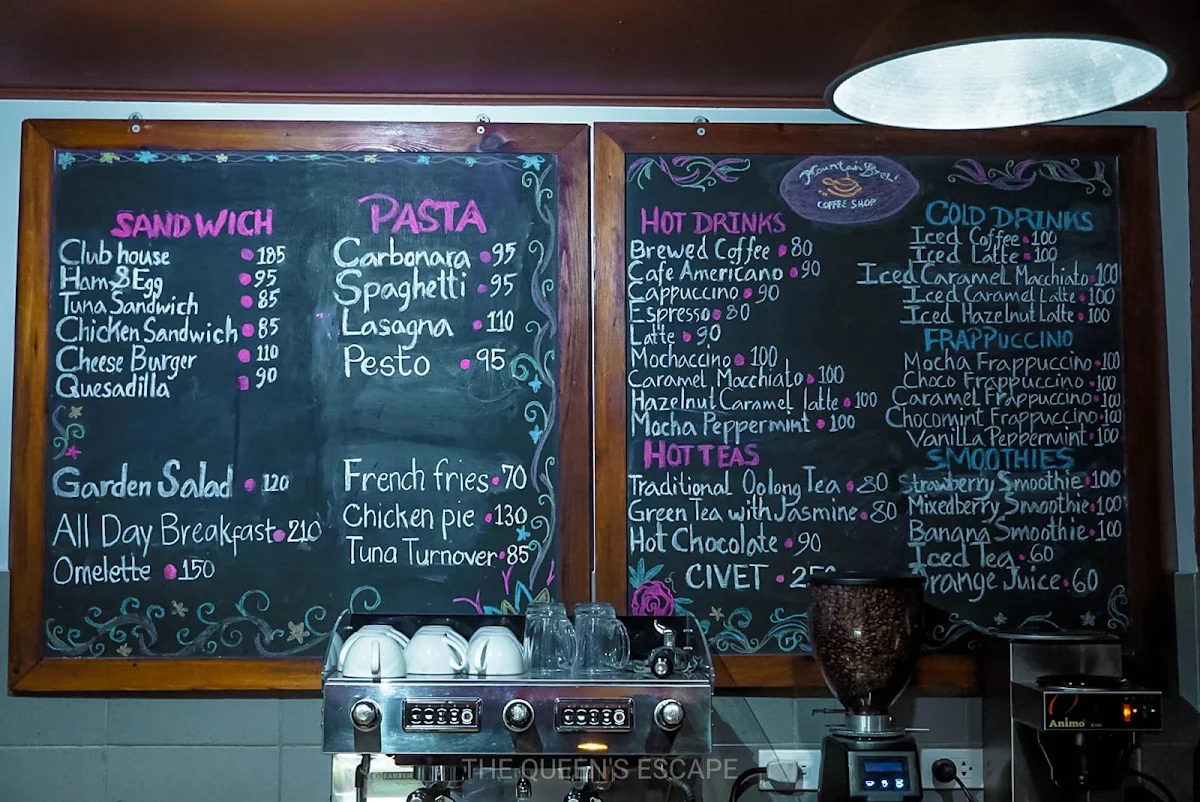 SANDWICH
Club house • 185
Ham & Egg • 95
Tuna Sandwich • 85
Chicken Sandwich • 85
Cheese Burger • 110
Quesadilla • 90
Garden Salad • 120
All Day Breakfast • 210
Omelette • 150
PASTA
Carbonara • 95
Spaghetti • 95
Lasagna • 110
Pesto • 95
French fries • 70
Chicken pie • 130
Tuna Turnover • 85
Mountain Brew
COFFEE SHOP
HOT DRINKS
Brewed Coffee • 80
Cafe Americano • 90
Cappuccino • 90
Espresso • 80
Latte • 90
Mochaccino • 100
Caramel Macchiato • 100
Hazelnut Caramel latte • 100
Mocha Peppermint • 100
HOT TEAS
Traditional Oolong Tea • 80
Green Tea with Jasmine • 80
Hot Chocolate • 90
CIVET • 25
COLD DRINKS
Iced Coffee • 100
Iced Latte • 100
Iced Caramel Macchiato • 100
Iced Caramel Latte • 100
Iced Hazelnut Latte • 100
FRAPPUCCINO
Mocha Frappuccino • 100
Choco Frappuccino • 100
Caramel Frappuccino • 100
Chocomint Frappuccino • 100
Vanilla Peppermint • 100
SMOOTHIES
Strawberry Smoothie • 100
Mixedberry Smoothie • 100
Banana Smoothie • 100
Iced Tea • 60
Orange Juice • 60
Animo
THE QUEEN'S ESCAPE